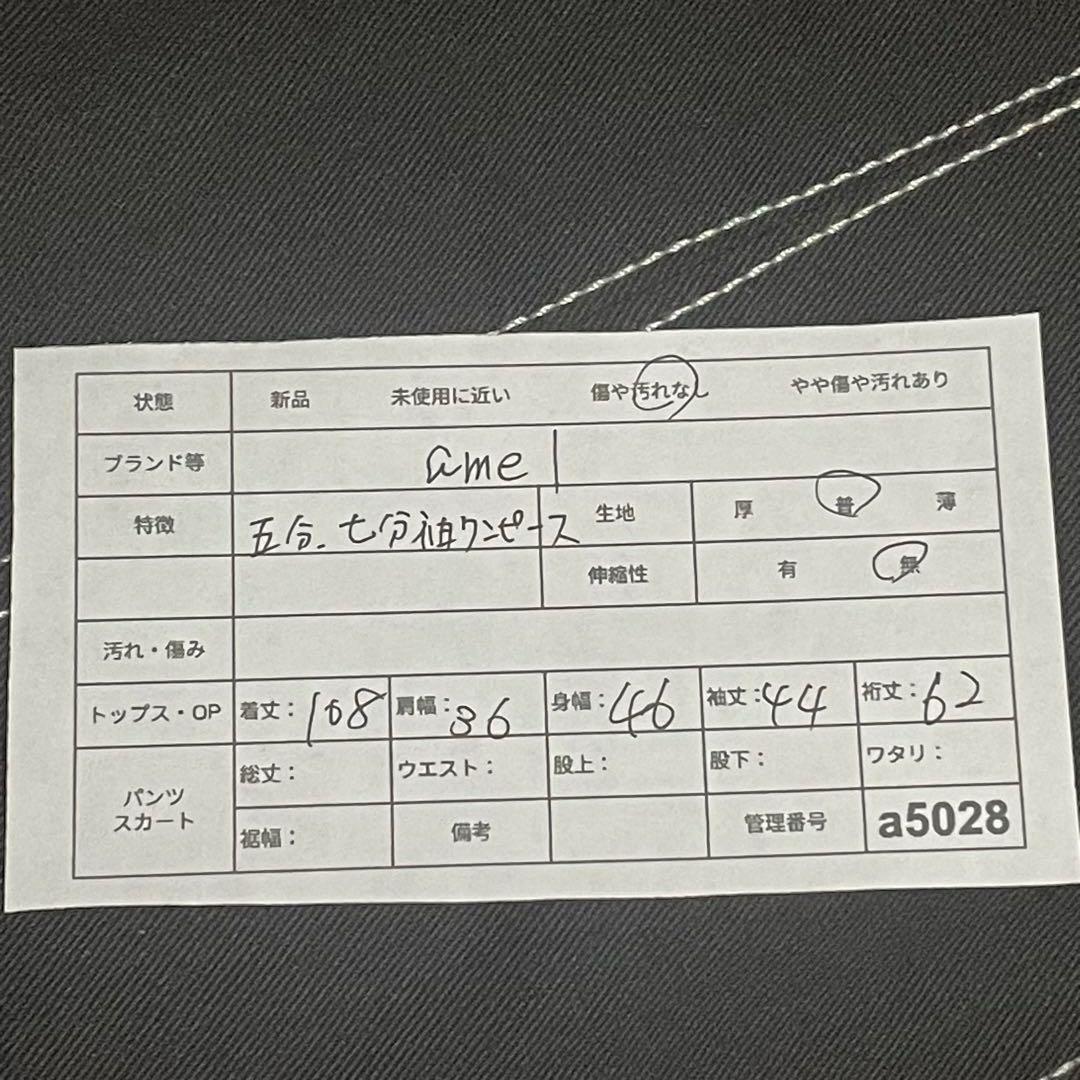 状態 新品 未使用に近い 傷や汚れなし やや傷や汚れあり
ブランド等 ame
特徴 五分、七分袖ワンピース 生地 厚 普 薄
伸縮性 有 無
汚れ・傷み
トップス・OP 着丈：108 肩幅：36 身幅：46 袖丈：44 裄丈：62
パンツ スカート 総丈： ウエスト： 股上： 股下： ワタリ：
裾幅： 備考 管理番号 a5028